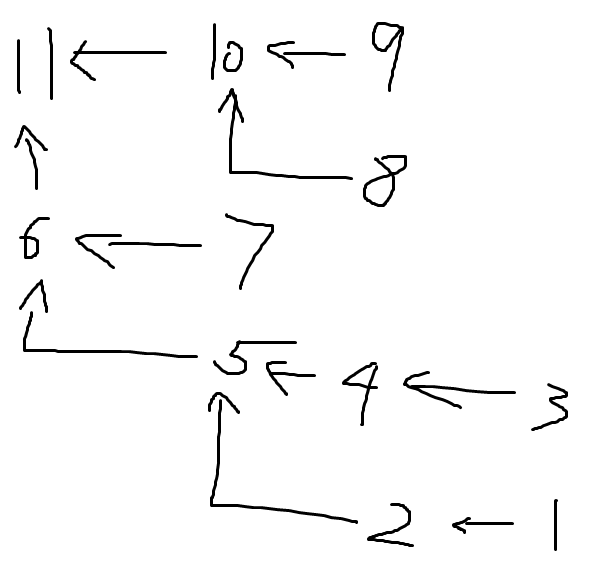 11 ← 10 ← 9
8
6 ← 7
5 ← 4 ← 3
2 ← 1